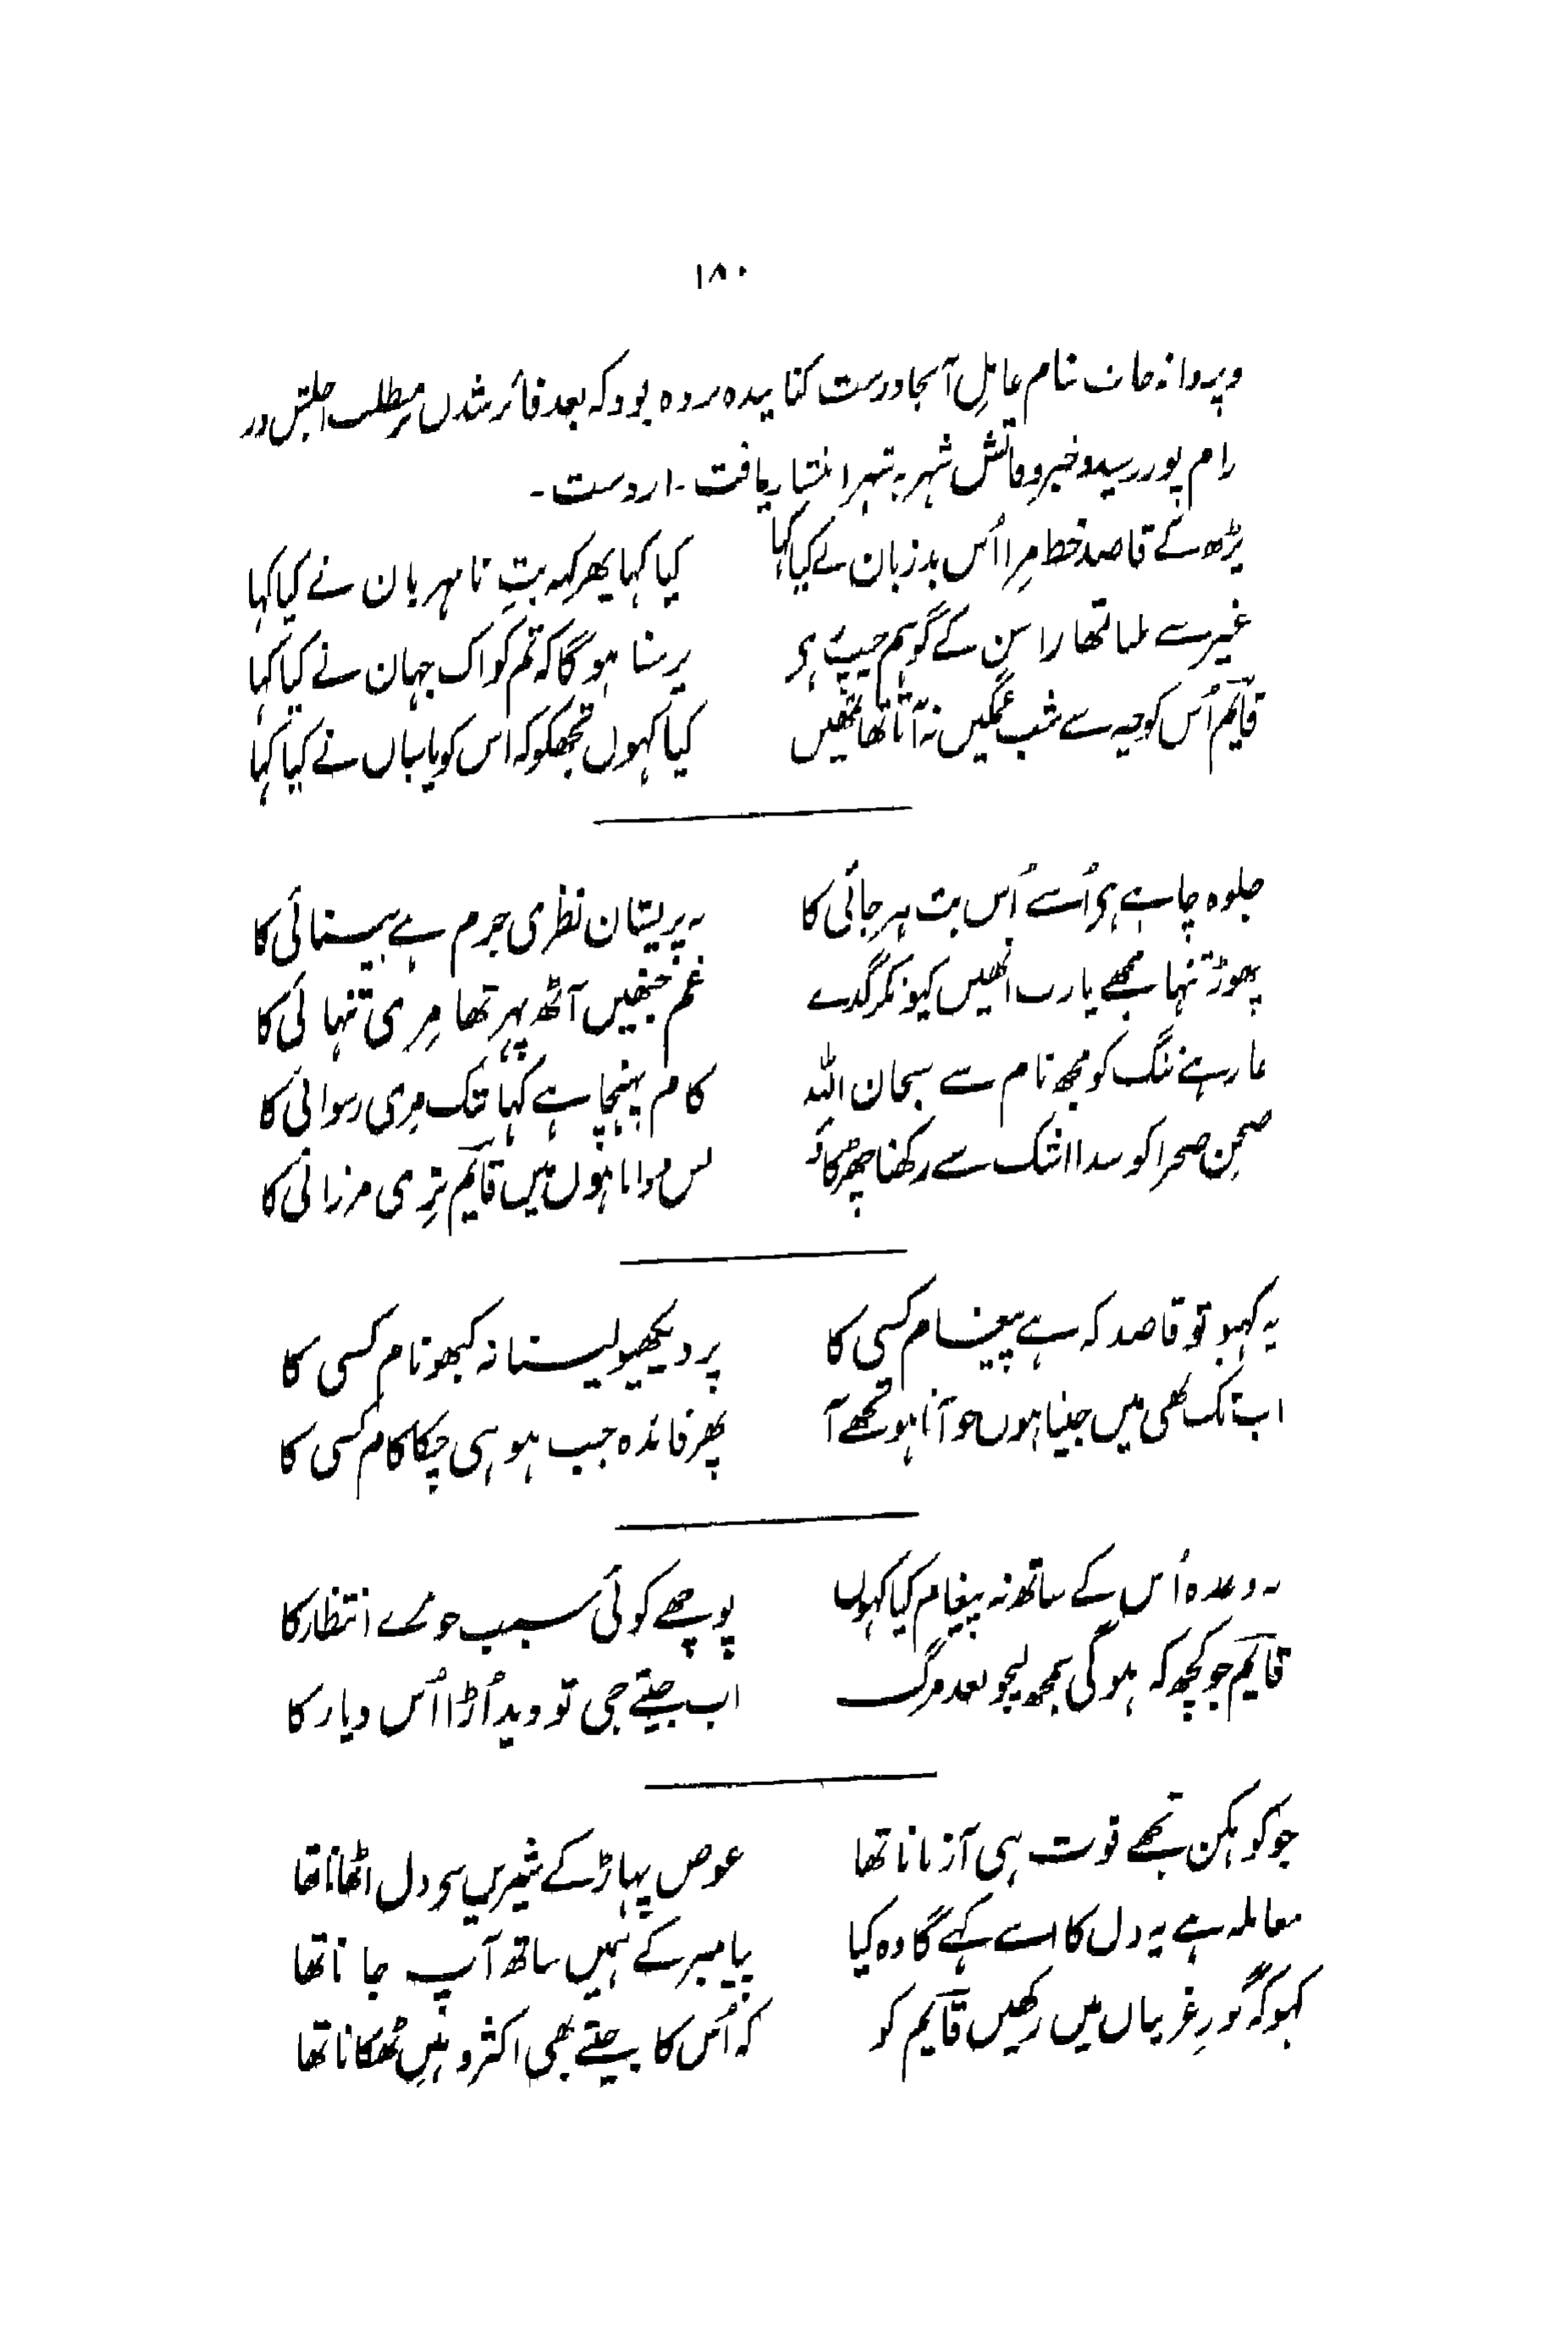 ۱۸۰
و پروانہ جات بنام عاملِ آنجا درست کنانیدہ بردہ بود کہ بعد فائز شدن بر مطلب اجلش در
رام پور رسید و خبر وفاتش شہر بہ شہر انتشار یافت ۔ ازوست ۔
پڑھ کے قاصد خط مِرا اُس بد زبان نے کیا کہا کیا کہا پھر کہہ بتِ نامہربان نے کیا کہا
غیر سے ملنا تمھارا سن کے گو ہم چپ رہے پر سنا ہوگا کہ تم کو اک جہان نے کیا کہا
قایم اُس کوچہ سے شب غمگیں نہ آتا تھا تمھیں کیا کہوں تجھکو کہ اس کو پاسباں نے کیا کہا
جلوہ چاہے ہی اُسے اُس بت ہرجائی کا نہ پریشان نظری جرم ہے بینائی کا
چھوڑ تنہا مجھے یارب انھیں کیونکر گذرے غم جنھیں آٹھ پہر تھا مِری تنہائی کا
عار ہے ننگ کو مجھ نام سے سبحان اللہ کام پہنچا ہے کہاں تک مِری رسوائی کا
صحنِ صحرا کو سدا اشک سے رکھنا چھڑکاؤ بس دوانا ہوں میں قایم تِری مرزائی کا
یہ کہیو تو قاصد کہ ہے پیغام کسی کا پر دیکھیو لینا نہ کبھو نام کسی کا
اب تک بھی میں جیتا ہوں جو آنا ہو تجھے آ پھر فائدہ جب ہو ہی چکا کام کسی کا
نہ وعدہ اُس کے ساتھ نہ پیغام کیا کہوں پوچھے کوئی سبب جو مرے انتظار کا
قایم جو کچھ کہ ہوگی سمجھ لیجو بعد مرگ اب جیتے جی تو دید اُڑا اُس دیار کا
جو کوہکن تجھے قوت ہی آزمانا تھا عوض پہاڑ کے شیریں سے دل اٹھانا تھا
معاملہ ہے یہ دل کا اسے کہے گا وہ کیا پیامبر کے ہمیں ساتھ آپ جانا تھا
کہو کہ گورِ غریباں میں رکھیں قایم کو کہ اُس کا جیتے بھی اکثر وہیں ٹھکانا تھا